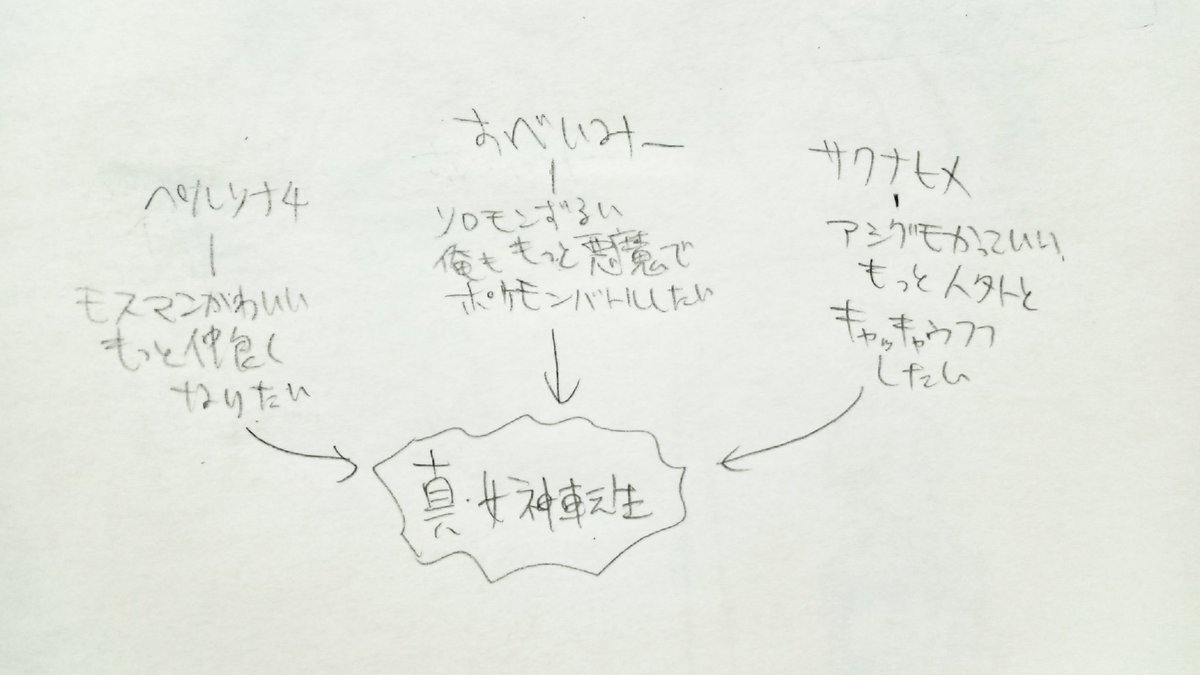 ペルソナ4
モスマンかわいい
もっと仲良く
なりたい
おべいみー
ソロモンずるい
俺ももっと悪魔で
ポケモンバトルしたい
サクナヒメ
アシグモかっこいい
もっと人外と
キャッキャウフフ
したい
真・女神転生